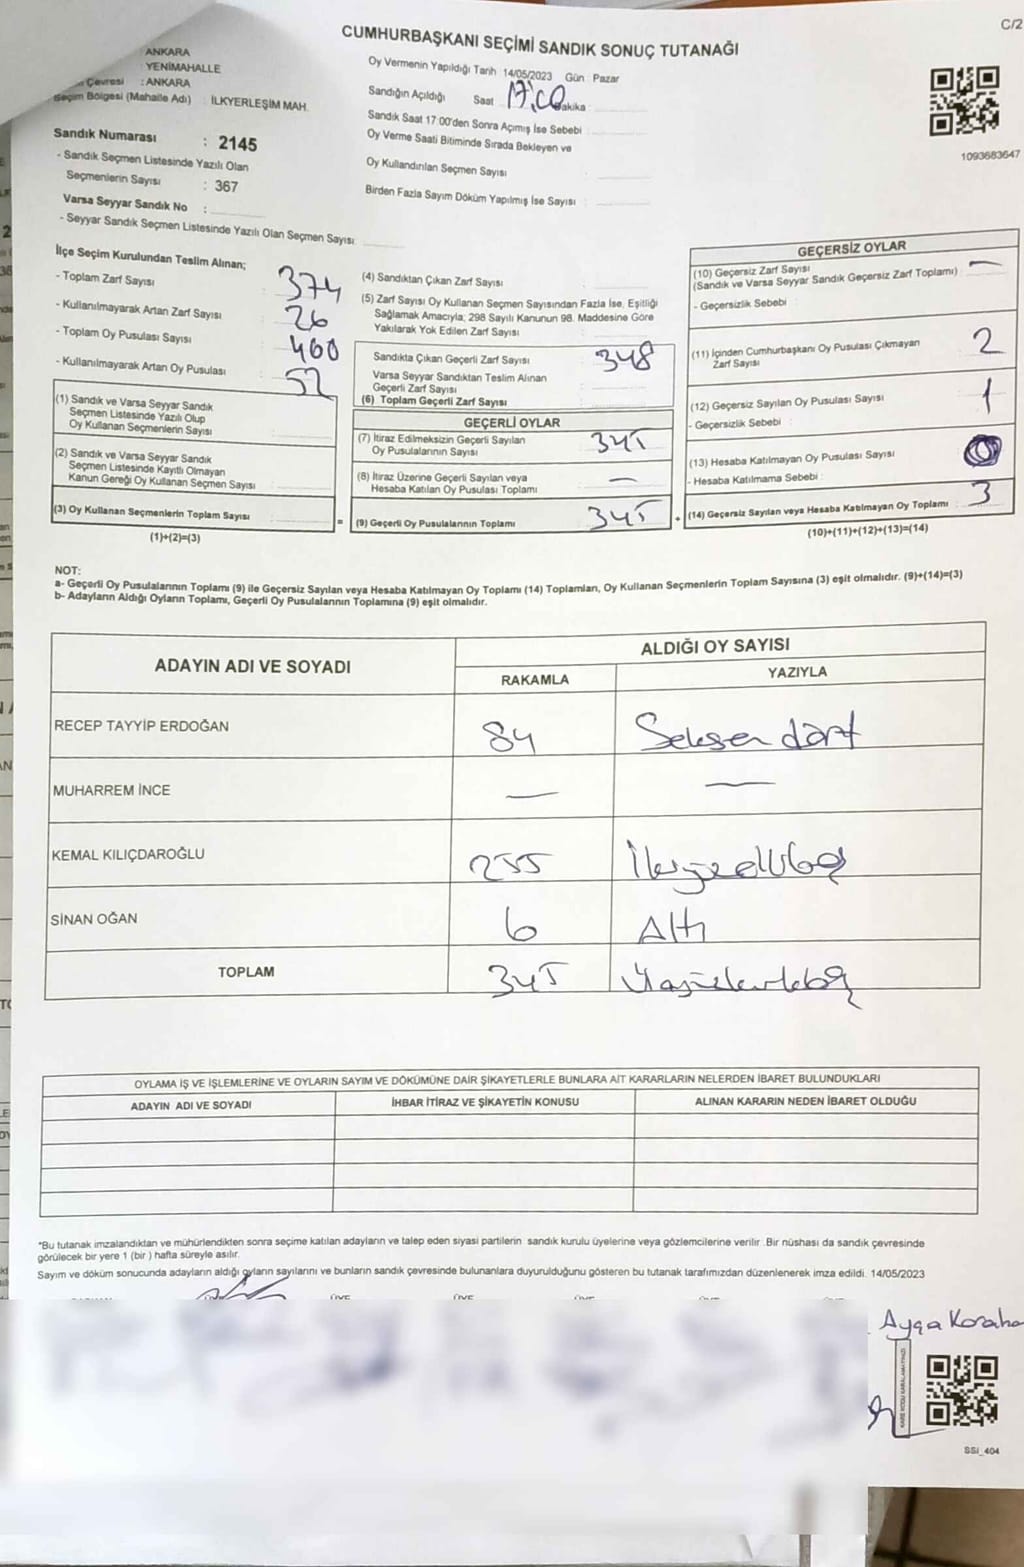 C/2
CUMHURBAŞKANI SEÇİMİ SANDIK SONUÇ TUTANAĞI
: ANKARA
: YENİMAHALLE
Çevresi : ANKARA
Seçim Bölgesi (Mahalle Adı) : İLKYERLEŞİM MAH.
Sandık Numarası : 2145
- Sandık Seçmen Listesinde Yazılı Olan
Seçmenlerin Sayısı : 367
Varsa Seyyar Sandık No :
- Seyyar Sandık Seçmen Listesinde Yazılı Olan Seçmen Sayısı:
Oy Vermenin Yapıldığı Tarih : 14/05/2023 Gün : Pazar
Sandığın Açıldığı Saat : 17:00 Dakika :
Sandık Saat 17:00'den Sonra Açımış İse Sebebi :
Oy Verme Saati Bitiminde Sırada Bekleyen ve
Oy Kullandırılan Seçmen Sayısı :
Birden Fazla Sayım Döküm Yapılmış İse Sayısı :
1093683647
İlçe Seçim Kurulundan Teslim Alınan;
- Toplam Zarf Sayısı : 374
- Kullanılmayarak Artan Zarf Sayısı : 26
- Toplam Oy Pusulası Sayısı : 400
- Kullanılmayarak Artan Oy Pusulası : 52
(1) Sandık ve Varsa Seyyar Sandık
Seçmen Listesinde Yazılı Olup
Oy Kullanan Seçmenlerin Sayısı :
(2) Sandık ve Varsa Seyyar Sandık
Seçmen Listesinde Kayıtlı Olmayan
Kanun Gereği Oy Kullanan Seçmen Sayısı :
(3) Oy Kullanan Seçmenlerin Toplam Sayısı :
(1)+(2)=(3)
(4) Sandıktan Çıkan Zarf Sayısı :
(5) Zarf Sayısı Oy Kullanan Seçmen Sayısından Fazla İse, Eşitliği
Sağlamak Amacıyla; 298 Sayılı Kanunun 98. Maddesine Göre
Yakılarak Yok Edilen Zarf Sayısı :
Sandıkta Çıkan Geçerli Zarf Sayısı : 348
Varsa Seyyar Sandıktan Teslim Alınan
Geçerli Zarf Sayısı :
(6) Toplam Geçerli Zarf Sayısı :
GEÇERLİ OYLAR
(7) İtiraz Edilmeksizin Geçerli Sayılan
Oy Pusulalarının Sayısı : 345
(8) İtiraz Üzerine Geçerli Sayılan veya
Hesaba Katılan Oy Pusulası Toplamı : —
= (9) Geçerli Oy Pusulalarının Toplamı : 345 +
GEÇERSİZ OYLAR
(10) Geçersiz Zarf Sayısı
(Sandık ve Varsa Seyyar Sandık Geçersiz Zarf Toplamı) : —
- Geçersizlik Sebebi :
(11) İçinden Cumhurbaşkanı Oy Pusulası Çıkmayan
Zarf Sayısı : 2
(12) Geçersiz Sayılan Oy Pusulası Sayısı : 1
- Geçersizlik Sebebi :
(13) Hesaba Katılmayan Oy Pusulası Sayısı : 0
- Hesaba Katılmama Sebebi :
(14) Geçersiz Sayılan veya Hesaba Katılmayan Oy Toplamı : 3
(10)+(11)+(12)+(13)=(14)
NOT:
a- Geçerli Oy Pusulalarının Toplamı (9) ile Geçersiz Sayılan veya Hesaba Katılmayan Oy Toplamı (14) Toplamları, Oy Kullanan Seçmenlerin Toplam Sayısına (3) eşit olmalıdır. (9)+(14)=(3)
b- Adayların Aldığı Oyların Toplamı, Geçerli Oy Pusulalarının Toplamına (9) eşit olmalıdır.
ADAYIN ADI VE SOYADI ALDIĞI OY SAYISI
RAKAMLA YAZIYLA
RECEP TAYYİP ERDOĞAN 84 Seksen dört
MUHARREM İNCE — —
KEMAL KILIÇDAROĞLU 255 İkiyüzellibeş
SİNAN OĞAN 6 Altı
TOPLAM 345 Üçyüzkırkbeş
OYLAMA İŞ VE İŞLEMLERİNE VE OYLARIN SAYIM VE DÖKÜMÜNE DAİR ŞİKAYETLERLE BUNLARA AİT KARARLARIN NELERDEN İBARET BULUNDUKLARI
ADAYIN ADI VE SOYADI İHBAR İTİRAZ VE ŞİKAYETİN KONUSU ALINAN KARARIN NEDEN İBARET OLDUĞU
*Bu tutanak imzalandıktan ve mühürlendikten sonra seçime katılan adayların ve talep eden siyasi partilerin sandık kurulu üyelerine veya gözlemcilerine verilir. Bir nüshası da sandık çevresinde
görülecek bir yere 1 (bir ) hafta süreyle asılır.
Sayım ve döküm sonucunda adayların aldığı oyların sayılarını ve bunların sandık çevresinde bulunanlara duyurulduğunu gösteren bu tutanak tarafımızdan düzenlenerek imza edildi. 14/05/2023
ÜYE ÜYE ÜYE ÜYE ÜYE
KARE KODU KARALAMAYINIZ!
SSİ_404